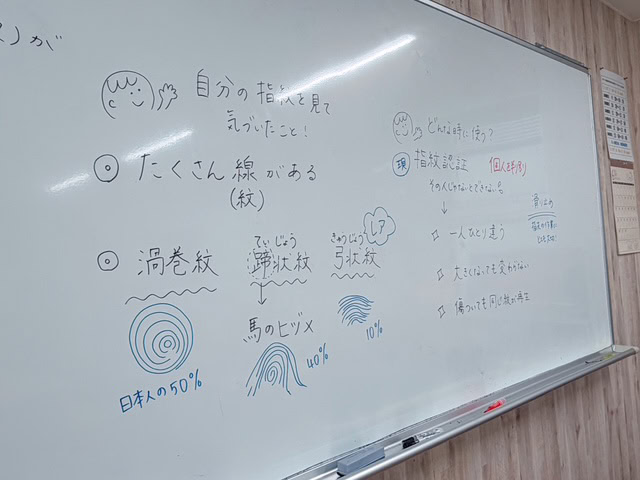 が
自分の指紋を見て
気づいたこと!
◎ たくさん線がある
(紋)
◎ 渦巻紋
ていじょう
蹄状紋
きゅうじょう
弓状紋
レア
馬のヒヅメ
日本人の50%
40%
10%
どんな時に使う?
現 指紋認証 個人判別
その人じゃないとできない
↓
☆ 一人ひとり違う
☆ 大きくなっても変わらない
☆ 傷ついても同じ紋が再生
滑り止め